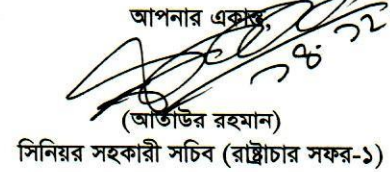 আপনার একান্ত,
(আতাউর রহমান)
সিনিয়র সহকারী সচিব (রাষ্ট্রাচার সফর-১)